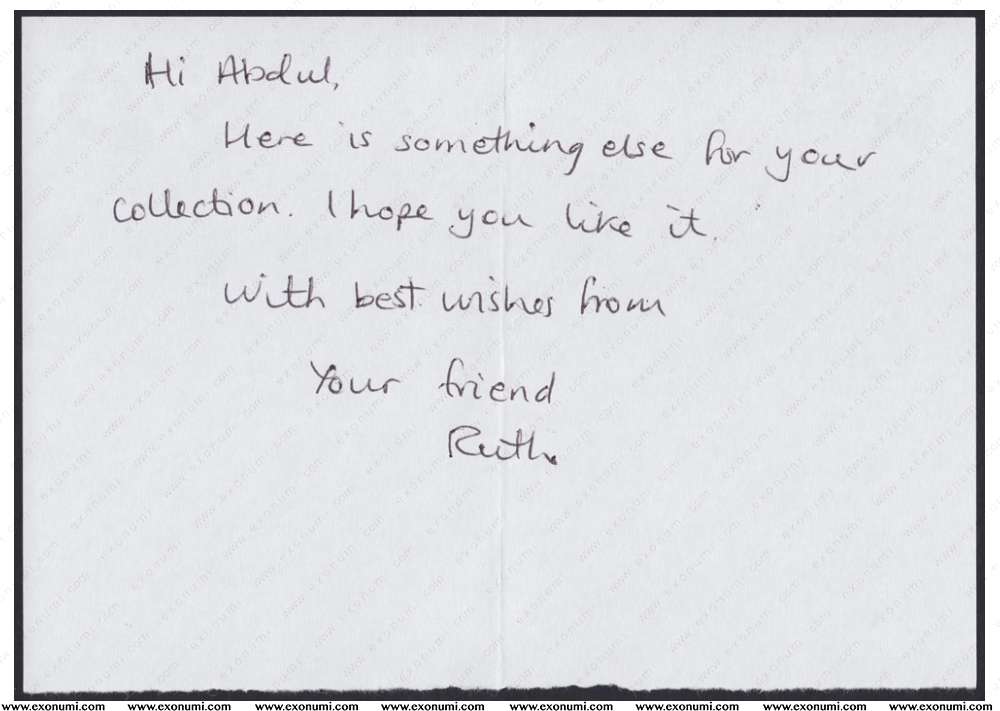 Hi Abdul,
Here is something else for your
collection. I hope you like it.
With best wishes from
Your friend
Ruth.
www.exonumi.com www.exonumi.com www.exonumi.com www.exonumi.com www.exonumi.com www.exonumi.com www.exonumi.com www.exonumi.com